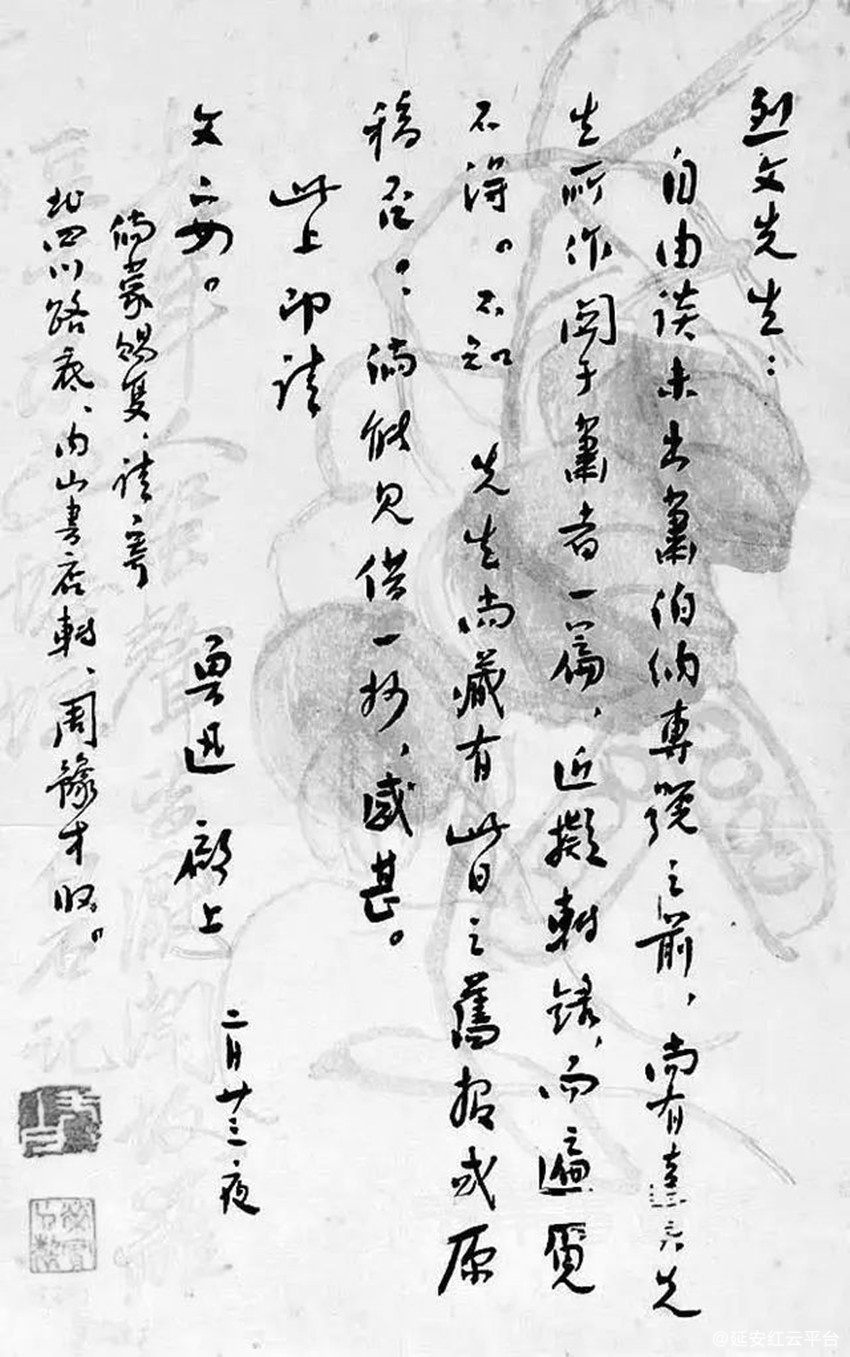 烈文先生：
自由談未出蕭伯納專號之前，尚有達六先
生所作関于蕭者一篇，近擬轉錄，而遍覓
不得。不知　先生尚藏有此日之舊報或原
稿否？：倘能見借一抄，感甚。
此上即請
文安。
魯迅　啟上　二月廿三夜
倘蒙賜复，請寄
北四川路底、內山書店轉、周豫才收。
@延安红云平台